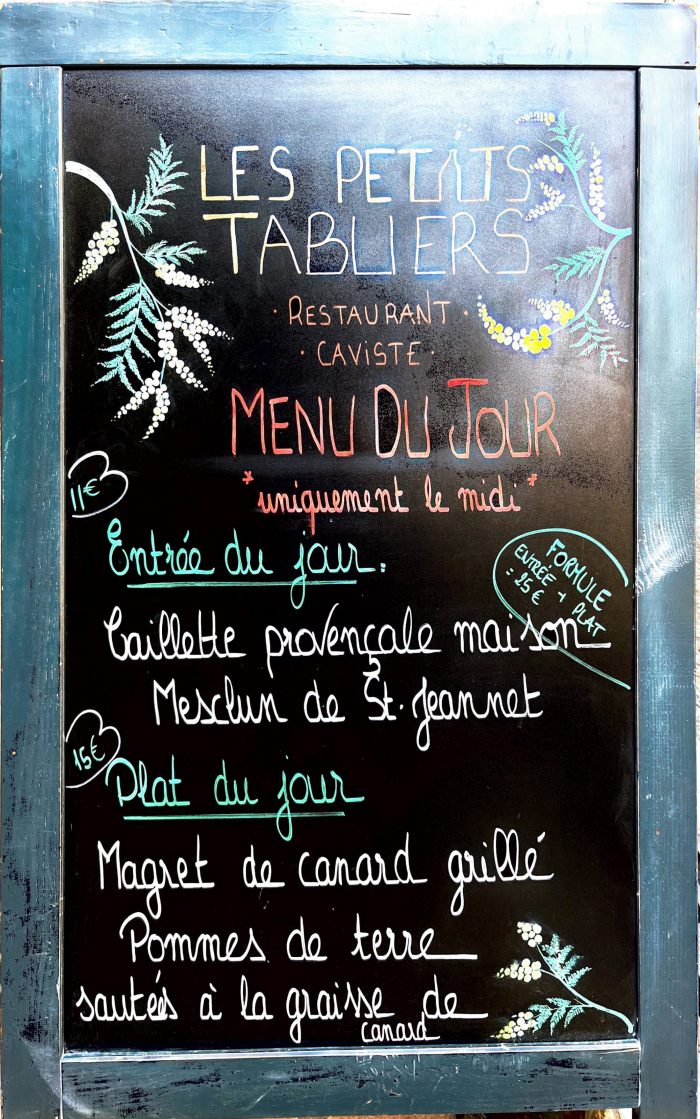 LES PETITS
TABLIERS
· RESTAURANT ·
· CAVISTE ·
MENU DU JOUR
*uniquement le midi*
11€
Entrée du jour.
FORMULE
ENTRÉE + PLAT
= 25€
Caillette provençale maison
Mesclun de St. Jeannet
15€
Plat du jour
Magret de canard grillé
Pommes de terre
sautées à la graisse de
canard